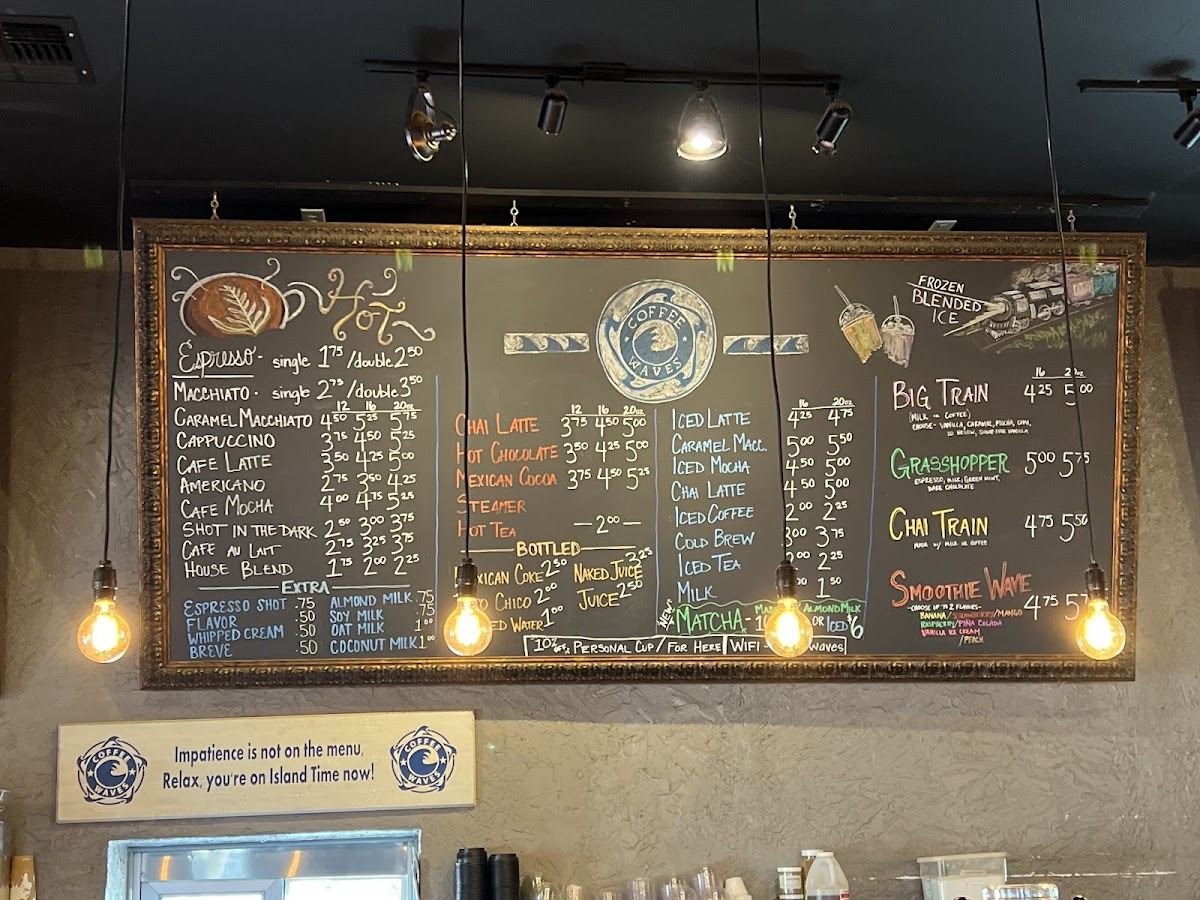 HOT
Espresso - single 1 75 / double 2 50
MACCHIATO - single 2 75 / double 3 50
12 16 20oz
CARAMEL MACCHIATO 4 50 5 25 5 75
CAPPUCCINO 3 75 4 50 5 25
CAFE LATTE 3 50 4 25 5 00
AMERICANO 2 75 3 50 4 25
CAFE MOCHA 4 00 4 75 5 25
SHOT IN THE DARK 2 50 3 00 3 75
CAFE AU LAIT 2 75 3 25 3 75
HOUSE BLEND 1 75 2 00 2 25
EXTRA
ESPRESSO SHOT .75
FLAVOR .50
WHIPPED CREAM .50
BREVE .50
ALMOND MILK .75
SOY MILK .75
OAT MILK 1 00
COCONUT MILK 1 00
COFFEE WAVES
12 16 20oz
CHAI LATTE 3 75 4 50 5 00
HOT CHOCOLATE 3 50 4 25 5 00
MEXICAN COCOA 3 75 4 50 5 25
STEAMER
HOT TEA — 2 00 —
BOTTLED
MEXICAN COKE 2 50
CHICO 2 00
WATER 1 00
NAKED JUICE 3 25
JUICE 2 50
16 20oz
ICED LATTE 4 25 4 75
CARAMEL MACC. 5 00 5 50
ICED MOCHA 4 50 5 00
CHAI LATTE 4 50 5 00
ICED COFFEE 2 00 2 25
COLD BREW 3 00 3 75
ICED TEA 2 00 2 25
MILK 1 50
NEW! MATCHA ALMOND MILK
OR ICED $6
10% OFF PERSONAL CUP / FOR HERE
WIFI - waves
FROZEN
BLENDED
ICE
16 20oz
BIG TRAIN 4 25 5 00
(MILK OR COFFEE)
CHOOSE - VANILLA, CARAMEL, MOCHA, CHAI,
GRASSHOPPER 5 00 5 75
ESPRESSO, MILK, GREEN MINT,
DARK CHOCOLATE
CHAI TRAIN 4 75 5 50
MADE W/ MILK OR COFFEE
SMOOTHIE WAVE 4 75
-CHOOSE UP TO 2 FLAVORS-
BANANA / STRAWBERRY / MANGO
RASPBERRY / PIÑA COLADA
VANILLA ICE CREAM
/ PEACH
COFFEE WAVES
Impatience is not on the menu,
Relax, you're on Island Time now!
COFFEE WAVES